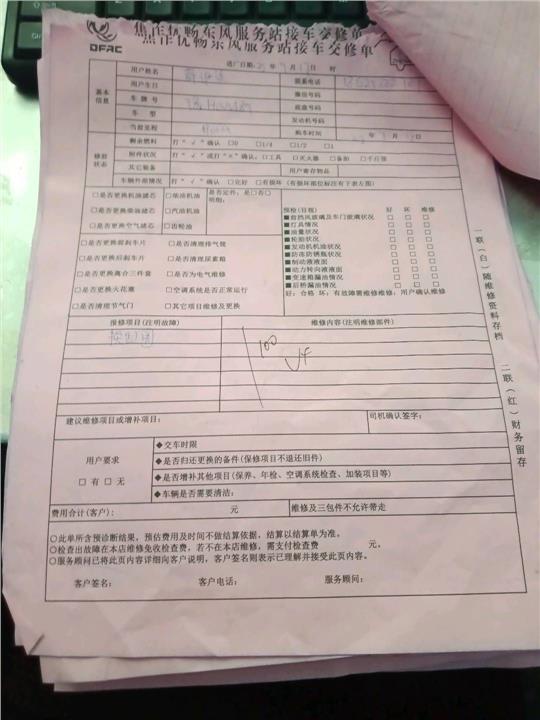 焦作优畅东风服务站接车交修单
焦作优畅东风服务站接车交修单
DFAC
进厂日期: 年 月 日 时
基本信息
用户姓名 联系电话
用户生日 微信号码
车牌号 底盘号码
车型 发动机号码
当前里程 购车时间 年 月 日
修前状态
剩余燃料 打“√”确认 □0 □1/4 □1/2 □1
附件状况 打“√”或打“×”确认:□工具 □灭火器 □备胎 □千斤顶
其它装备 用户寄存物品
车辆外部情况 打“√”确认 □完好 □有损坏(有损坏部位标注右下表左图)
□是否更换机油滤芯 □柴油机油
□是否更换柴油滤芯 □汽油机油
□是否更换空气滤芯 □齿轮油
是否定件:是□否□
明细:
□是否更换前刹车片 □是否清理排气管
□是否更换后刹车片 □是否清理尿素箱
□是否更换离合三件套 □是否为电气维修
□是否更换火花塞 □空调系统是否正常运行
□是否清理节气门 □其它项目维修及更换
预检(目视) 好 坏 维修
■前挡风玻璃及车门玻璃状况 □ □ □
■灯具情况 □ □ □
■油量状况 □ □ □
■轮胎状况 □ □ □
■发动机机油状况 □ □ □
■防冻防锈瓶状况 □ □ □
■制动液液面 □ □ □
■动力转向液液面 □ □ □
■变速箱漏油情况 □ □ □
■后桥漏油情况 □ □ □
好:合格 坏:有故障需维修维修:用户确认维修
报修项目(注明故障) 维修内容(注明维修部件)
100
建议维修项目或增补项目: 司机确认签字:
用户要求
□有 □无
◆交车时限
◆是否归还更换的备件(保修项目不退还旧件)
◆是否增补其他项目(保养、年检、空调系统检查、加装项目等)
◆车辆是否需要清洁:
费用合计(客户): 元 维修及三包件不允许带走
○此单所含预诊断结果,预估费用及时间不做结算依据,结算以结算单为准。
○检查出故障在本店维修免收检查费,若不在本店维修,需支付检查费 元。
○服务顾问已将此页内容详细向客户说明,客户签名则表示已理解并接受此页内容。
客户签名: 客户电话: 服务顾问:
一联(白)随维修资料存档
二联(红)财务留存